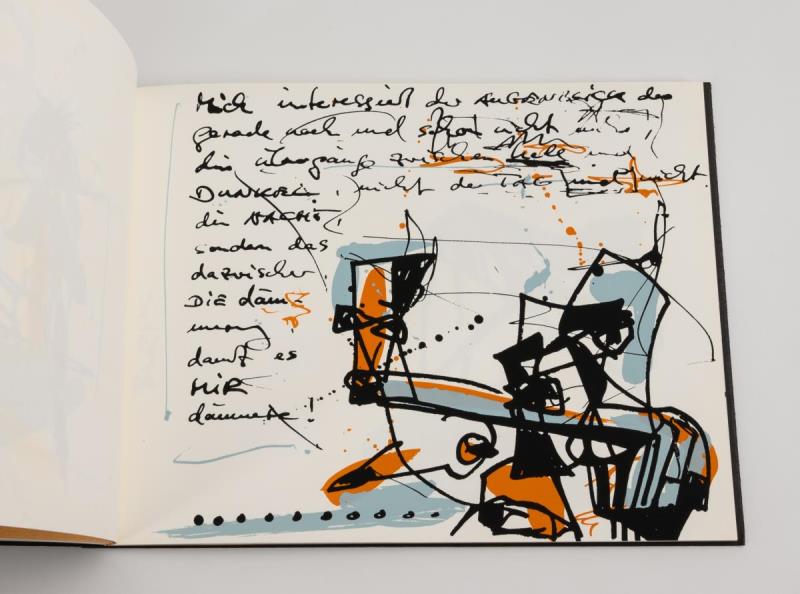 Mich interessiert der AUGENBLICK des
gerade noch und schon nicht mehr,
die Übergänge zwischen hell und
DUNKEL, nicht der TAG und nicht
die NACHT,
sondern das
dazwischen
DIE däm-
merung
damit es
MIR
dämmere!